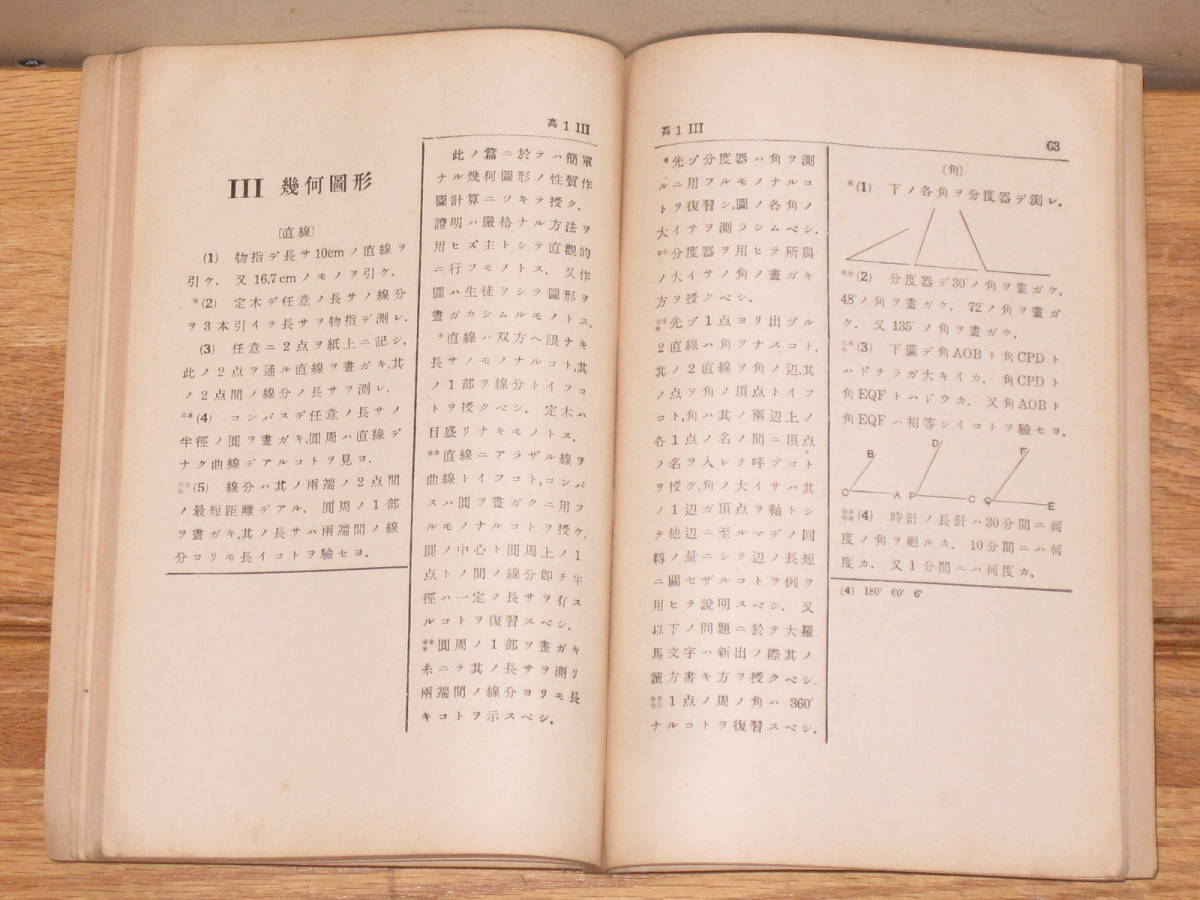 高 1 III
III 幾何圖形
〔直線〕
(1) 物指デ長サ 10cm ノ直線ヲ
引ケ. 又 16.7cm ノモノヲ引ケ.
*(2) 定木デ任意ノ長サノ線分
ヲ 3 本引イテ長サヲ物指デ測レ.
(3) 任意ニ 2 点ヲ紙上ニ記シ,
此ノ 2 点ヲ通ル直線ヲ畫ガキ,其
ノ 2 点間ノ線分ノ長サヲ測レ.
**(4) コンパスデ任意ノ長サノ
半徑ノ圓ヲ畫ガキ,圓周ハ直線デ
ナク曲線デアルコトヲ見ヨ.
(5) 線分ハ其ノ兩端ノ 2 点間
ノ最短距離デアル. 圓周ノ 1 部
ヲ畫ガキ,其ノ長サハ兩端間ノ線
分ヨリモ長イコトヲ驗セヨ.
此ノ篇ニ於テハ簡單
ナル幾何圖形ノ性質作
圖計算ニツキテ授ク.
證明ハ嚴格ナル方法ヲ
用ヒズ主トシテ直觀的
ニ行フモノトス. 又作
圖ハ生徒ヲシテ圖形ヲ
畫ガカシムルモノトス.
*直線ハ双方ヘ限ナキ
長サノモノナルコト,其
ノ 1 部ヲ線分トイフコ
トヲ授クベシ. 定木ハ
目盛リナキモノトス.
**直線ニアラザル線ヲ
曲線トイフコト,コンパ
スハ圓ヲ畫ガクニ用フ
ルモノナルコトヲ授ケ,
圓ノ中心ト圓周上ノ 1
点トノ間ノ線分卽チ半
徑ハ一定ノ長サヲ有ス
ルコトヲ復習スベシ.
圓周ノ 1 部ヲ畫ガキ
糸ニテ其ノ長サヲ測リ
兩端間ノ線分ヨリモ長
キコトヲ示スベシ.
高 1 III
63
*先ヅ分度器ハ角ヲ測
ルニ用フルモノナルコ
トヲ復習シ,圖ノ各角ノ
大イサヲ測ラシムベシ.
**分度器ヲ用ヒテ所與
ノ大イサノ角ノ畫ガキ
方ヲ授クベシ.
先ヅ 1 点ヨリ出ヅル
2 直線ハ角ヲナスコト,
其ノ 2 直線ヲ角ノ辺,其
ノ点ヲ角ノ頂点トイフ
コト,角ハ其ノ兩辺上ノ
各 1 点ノ名ノ間ニ頂点
ノ名ヲ入レテ呼デコト
ヲ授ケ,角ノ大イサハ其
ノ 1 辺ガ頂点ヲ軸トシ
テ他辺ニ至ルマデノ回
轉ノ量ニシテ辺ノ長短
ニ關セザルコトヲ例ヲ
用ヒテ說明スベシ. 又
以下ノ問題ニ於テ大羅
馬文字ハ新出ノ際其ノ
讀方書キ方ヲ授クベシ.
1 点ノ周ノ角ハ 360°
ナルコトヲ復習スベシ.
〔角〕
*(1) 下ノ各角ヲ分度器デ測レ.
**(2) 分度器デ 30° ノ角ヲ畫ガケ.
48° ノ角ヲ畫ガケ. 72° ノ角ヲ畫ガ
ケ. 又 135° ノ角ヲ畫ガケ.
(3) 下圖デ角 AOB ト角 CPD ト
ハドチラガ大キイカ. 角 CPD ト
角 EQF トハドウカ. 又角 AOB ト
角 EQF ハ相等シイコトヲ驗セヨ.
B D F
O A P C Q E
(4) 時計ノ長針ハ 30 分間ニ何
度ノ角ヲ廻ルカ. 10 分間ニハ何
度カ. 又 1 分間ニハ何度カ.
(4) 180° 60° 6°